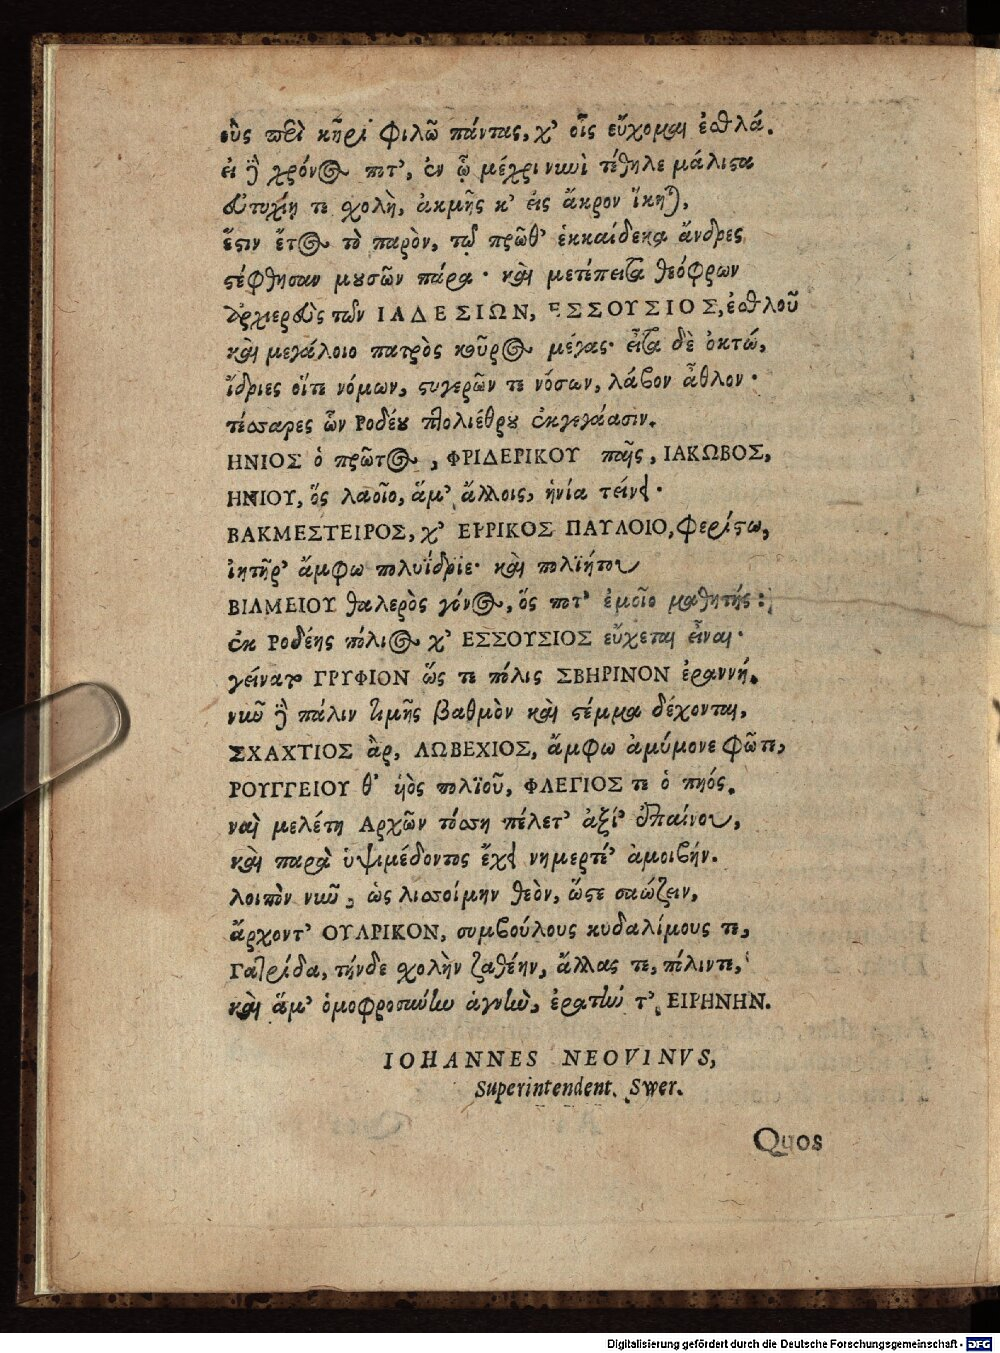 οὓς περὶ κῆρι φιλῶ πάντας, χ' οἷς εὔχομαι ἐσθλά.
εἰ δὲ χρόνος ποτ', ἐν ᾧ μέχρι νυνὶ τέθηλε μάλιστα
εὐτυχίη τε σχολὴ, ἀκμῆς κ' εἰς ἄκρον ἵκηται,
ἔστιν ἔτος τὸ παρὸν, τῷ πρῶθ' ἑκκαίδεκα ἄνδρες
στέφθησαν μουσῶν πάρα · καὶ μετέπειτα θεόφρων
ἀρχιερεὺς τῶν ΙΑΔΕΣΙΩΝ, ΕΣΣΟΥΣΙΟΣ, ἐσθλοῦ
καὶ μεγάλοιο πατρὸς κοῦρος μέγας· εἶτα δὲ ὀκτώ,
ἴδριες οἵτε νόμων, στυγερῶν τε νόσων, λάβον ἆθλον ·
τέσσαρες ὧν Ροδέου πτολιέθρου ἐκγεγάασιν.
ΗΝΙΟΣ ὁ πρῶτος, ΦΡΙΔΕΡΙΚΟΥ παῖς, ΙΑΚΩΒΟΣ,
ΗΝΙΟΥ, ὅς λαοῖο, ἅμ' ἄλλοις, ἡνία τείνει ·
ΒΑΚΜΕΣΤΕΙΡΟΣ, χ' ΕΡΡΙΚΟΣ ΠΑΥΛΟΙΟ, φερίστω,
ἰητῆρ' ἄμφω πολυΐδρϊε· καὶ πολϊήτου
ΒΙΛΜΕΙΟΥ θαλερὸς γόνος, ὅς ποτ' ἐμοῖο μαθητής:
ἐκ Ροδέης πόλιος χ' ΕΣΣΟΥΣΙΟΣ εὔχεται εἶναι·
γείνατο ΓΡΥΦΙΟΝ ὥς τε πόλις ΣΒΗΡΙΝΟΝ ἐραννή.
νῦν δὲ πάλιν τιμῆς βαθμὸν καὶ στέμμα δέχονται,
ΣΧΑΧΤΙΟΣ ἂρ, ΛΩΒΕΧΙΟΣ, ἄμφω ἀμύμονε φῶτε,
ΡΟΥΓΓΕΙΟΥ θ' υἱὸς πολϊοῦ, ΦΛΕΓΙΟΣ τε ὁ πηός.
ναὶ μελέτη Αρχῶν τόσση πέλετ' ἀξί' ἐπαίνου,
καὶ παρὰ ὑψιμέδοντος ἔχει νημερτέ' ἀμοιβήν.
λοιπὸν νῦν, ὡς λισσοίμην θεὸν, ὥστε σαώζειν,
ἄρχοντ' ΟΥΛΡΙΚΟΝ, συμβούλους κυδαλίμους τε,
Πατρίδα, τήνδε σχολὴν ζαθέην, ἄλλας τε, πόλιντε,
καὶ ἅμ' ὁμοφροσύνην ἁγνὴν, ἐρατήν τ', ΕΙΡΗΝΗΝ.
IOHANNES NEOVINVS,
Superintendent. Swer.
Quos
Digitalisierung gefördert durch die Deutsche Forschungsgemeinschaft - DFG